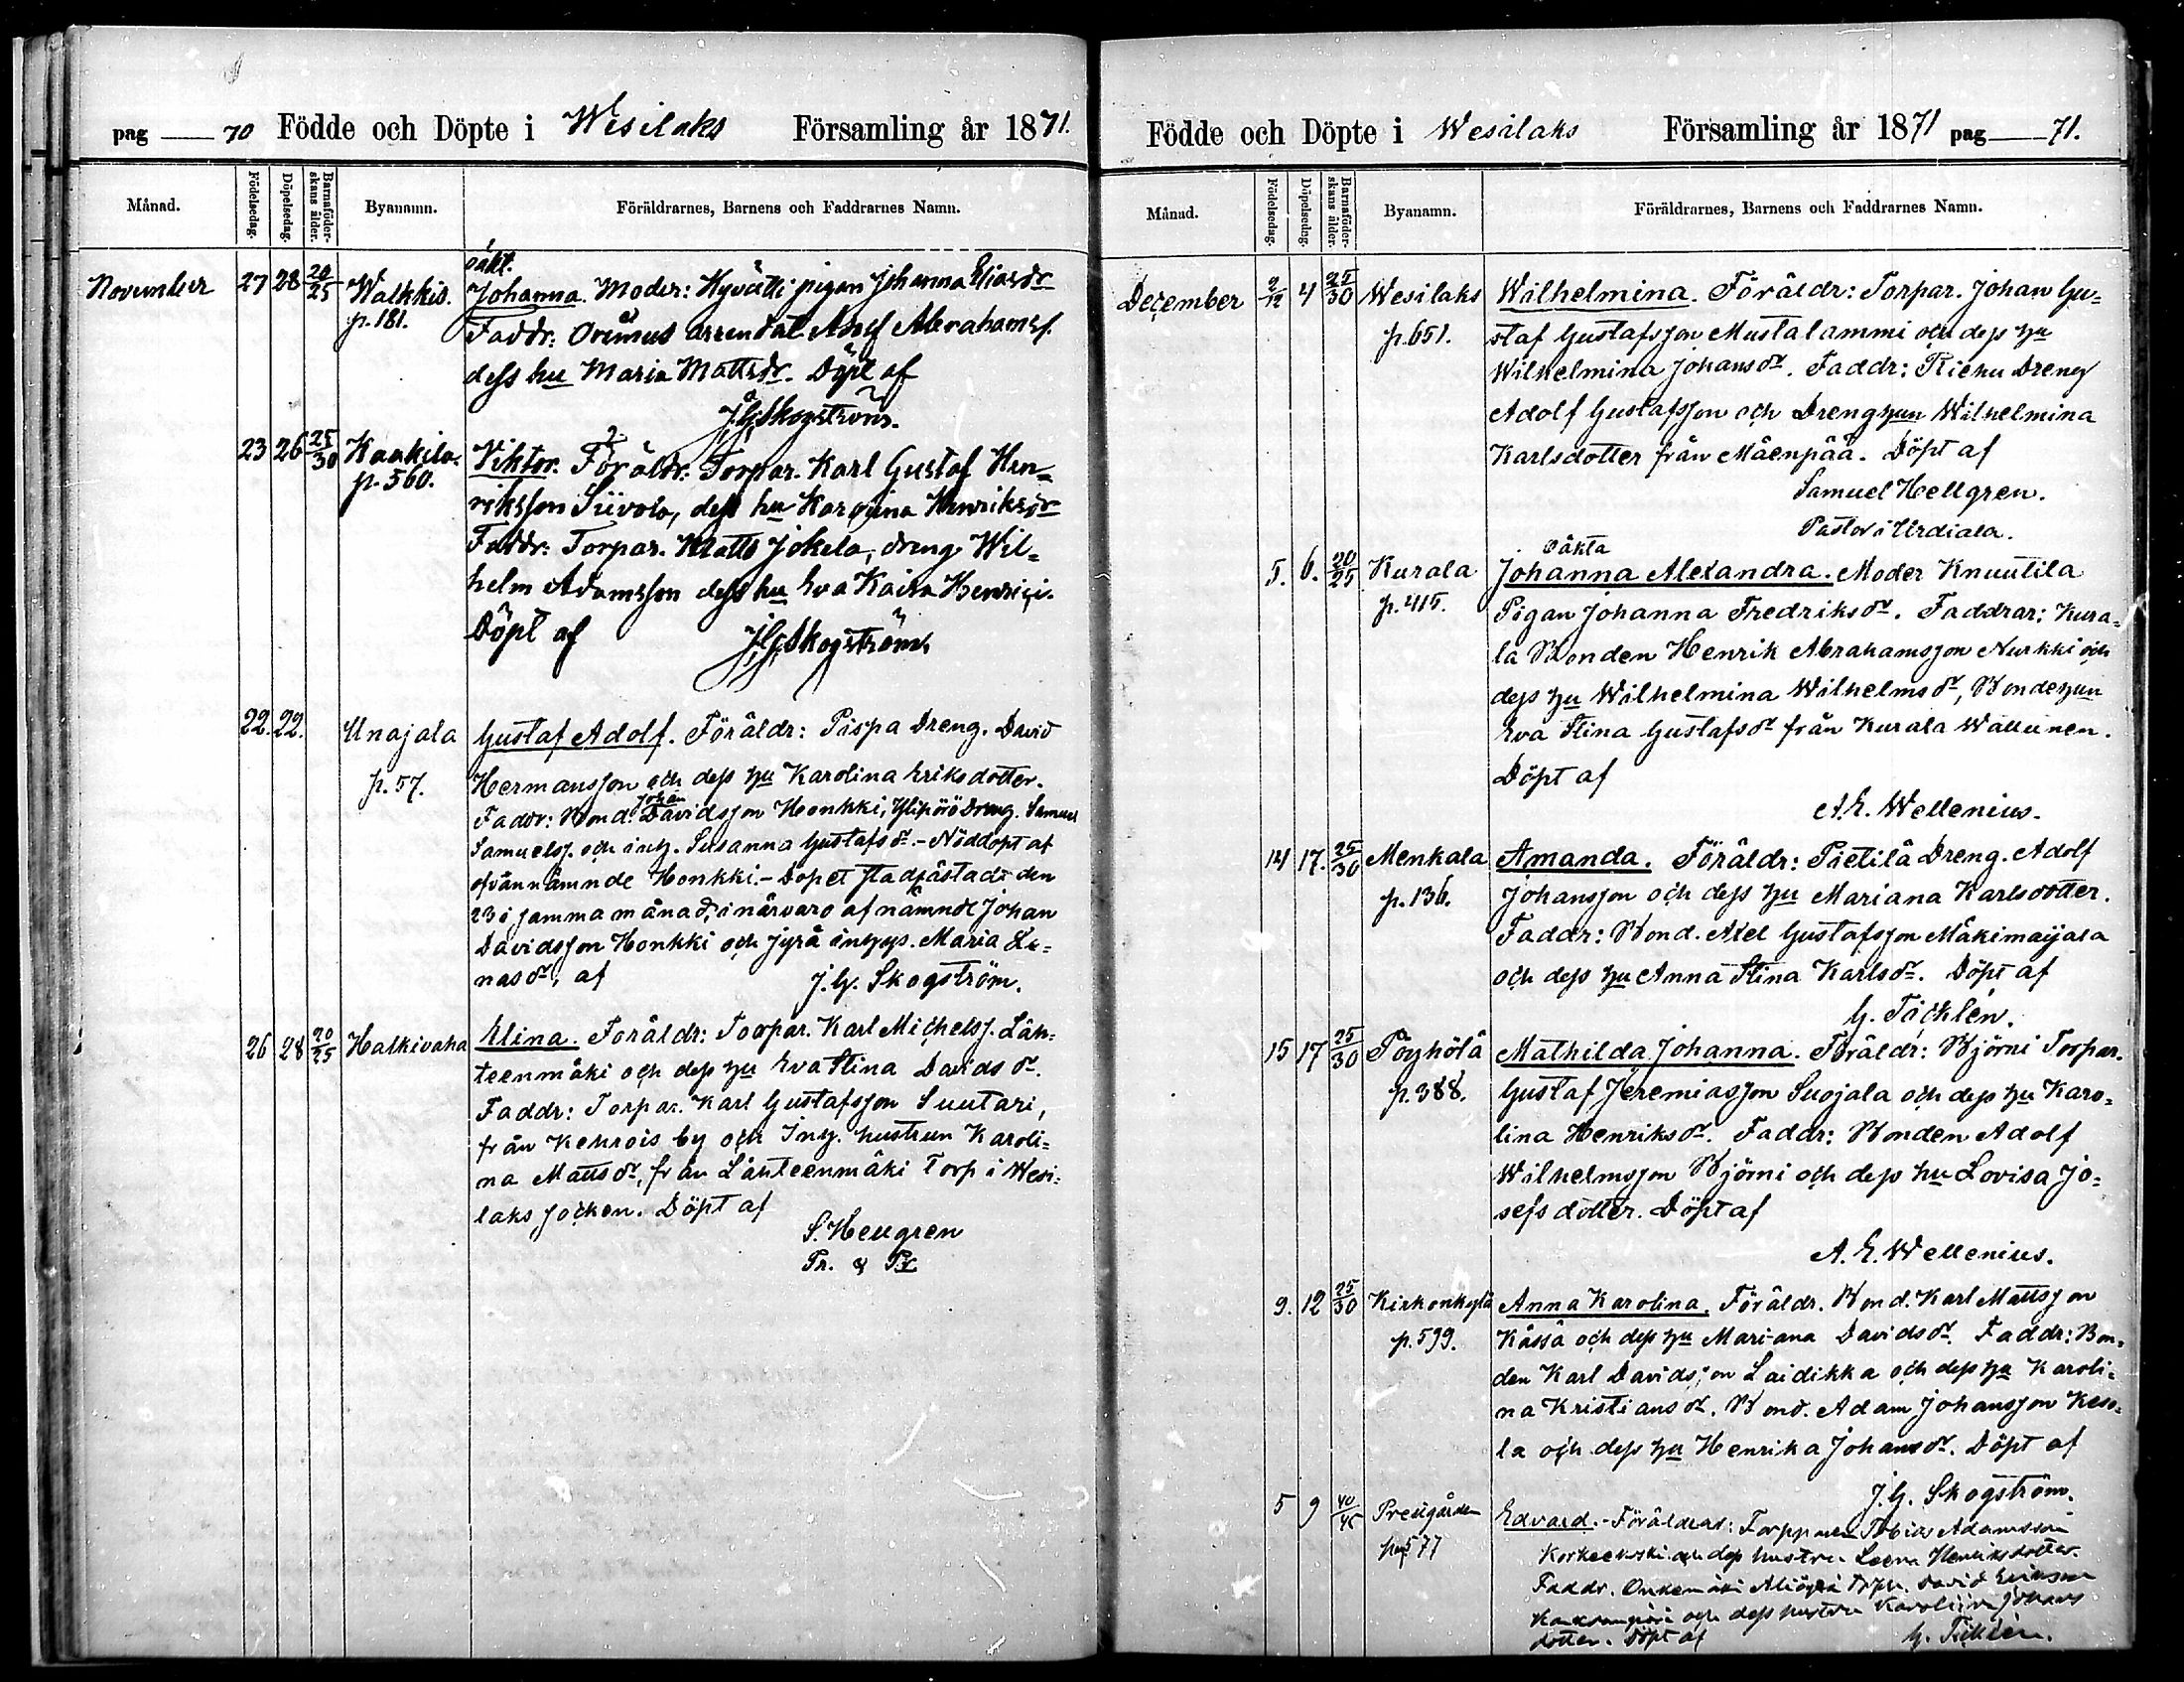 pag 70 Födde och Döpte i Wesilaks Församling år 1871.
Månad. Födelsedag. Döpelsedag. Barnaföderskans ålder. Byanamn. Föräldrarnes, Barnens och Faddrarnes Namn.
oäkt.
November 27 28 20/25 Walkkis. Johanna. Moder: Hyvätti pigan Johanna Eliasdr
p. 181. Faddr: Abrahamss.
dess hu Maria Mattsdr. Döpt af
J.G. Skogström.
23 26 25/30 Kaakila. Viktor. Föräldr: Torpar. Karl Gustaf Hen-
p. 560. riksson Siivola, dess hu Karolina Henriksdr
Faddr: Torpar. Matts Jokela, dreng Wil=
helm Adamsson dess hu Eva Kaisa Henrici.
Döpt af J.G. Skogström
22. 22. Unajala Gustaf Adolf. Föräldr: Pispa Dreng. David
p. 57. Hermansson och dess hu Karolina Eriksdotter.
Johan
Faddr: Bond. Davidsson Honkki, Ylipörö Dreng. Samuel
Samuelss. och inh. Susanna Gustafsdr. - Nöddöpt af
ofvannämnde Honkki. - Dopet stadfästadt den
23 i samma månad, i närvaro af nämnde Johan
Davidsson Honkki och Jyrä inhys. Maria Lu=
nasdr, af J.G. Skogström.
26 28 20/25 Halkivaha Elina. Föräldr: Torpar. Karl Michelss. Län=
teenmäki och dess hu Eva Stina Davidsdr.
Faddr: Torpar. Karl Gustafsson Suutari,
från Kehrois by och Inh. hustrun Karoli=
na Mattsdr, från Länteenmäki Torp i Wesi=
laks socken. Döpt af
S. Hellgren
Pr. & Pr
Födde och Döpte i Wesilaks Församling år 1871 pag 71.
Månad. Födelsedag. Döpelsedag. Barnaföderskans ålder. Byanamn. Föräldrarnes, Barnens och Faddrarnes Namn.
December 2/12 4 25/30 Wesilaks Wilhelmina. Föräldr: Torpar. Johan Gu=
p. 651. staf Gustafsson Mustalammi och dess hu
Wilhelmina Johansdr. Faddr: Riehu Dreng
Adolf Gustafsson och Dreng hun Wilhelmina
Karlsdotter från Mäenpää. Döpt af
Samuel Hellgren.
Pastor i Urdiala.
oäkta
5. 6. 20/25 Kurala Johanna Alexandra. Moder Knuutila
p. 415. Pigan Johanna Fredriksdr. Faddrar: Kura=
la Bonden Henrik Abrahamsson Nurkki och
dess hu Wilhelmina Wilhelmsdr, Bondehun
Eva Stina Gustafsdr från Kurala Wallunen.
Döpt af
A.E. Wellenius.
14 17. 25/30 Menkala Amanda. Föräldr: Pietilä Dreng. Adolf
p. 136. Johansson och dess hu Mariana Karlsdotter.
Faddr: Bond. Axel Gustafsson Mäkimaijala
och dess hu Anna Stina Karlsdr. Döpt af
G. Täcklén.
15 17 25/30 Pöyhölä Mathilda Johanna. Föräldr: Björni Torpar.
p. 388. Gustaf Jeremiasson Suojala och dess hu Karo=
lina Henriksdr. Faddr: Bonden Adolf
Wilhelmsson Björni och dess hu Lovisa Jo=
sefsdotter. Döpt af
A.E. Wellenius.
9. 12 25/30 Kirkonkylä Anna Karolina. Föräldr. Bond. Karl Mattsson
p. 599. Kässä och dess hu Mariana Davidsdr. Faddr: Bon=
den Karl Davidsson Laidikka och dess hu Karoli=
na Kristiansdr. Bond. Adam Johansson Keso=
la och dess hu Henrika Johansdr. Döpt af
J.G. Skogström.
5 9 40/45 Prestgården Edvard. - Föräldrar: Torpparen Tobias Adamsson
pag 577 och dess hustru Leena Henriksdotter.
Faddr. Onkemäki David Eriksson
och dess hustru Karolina Johans
dotter. Döpt af G. Täcklén.